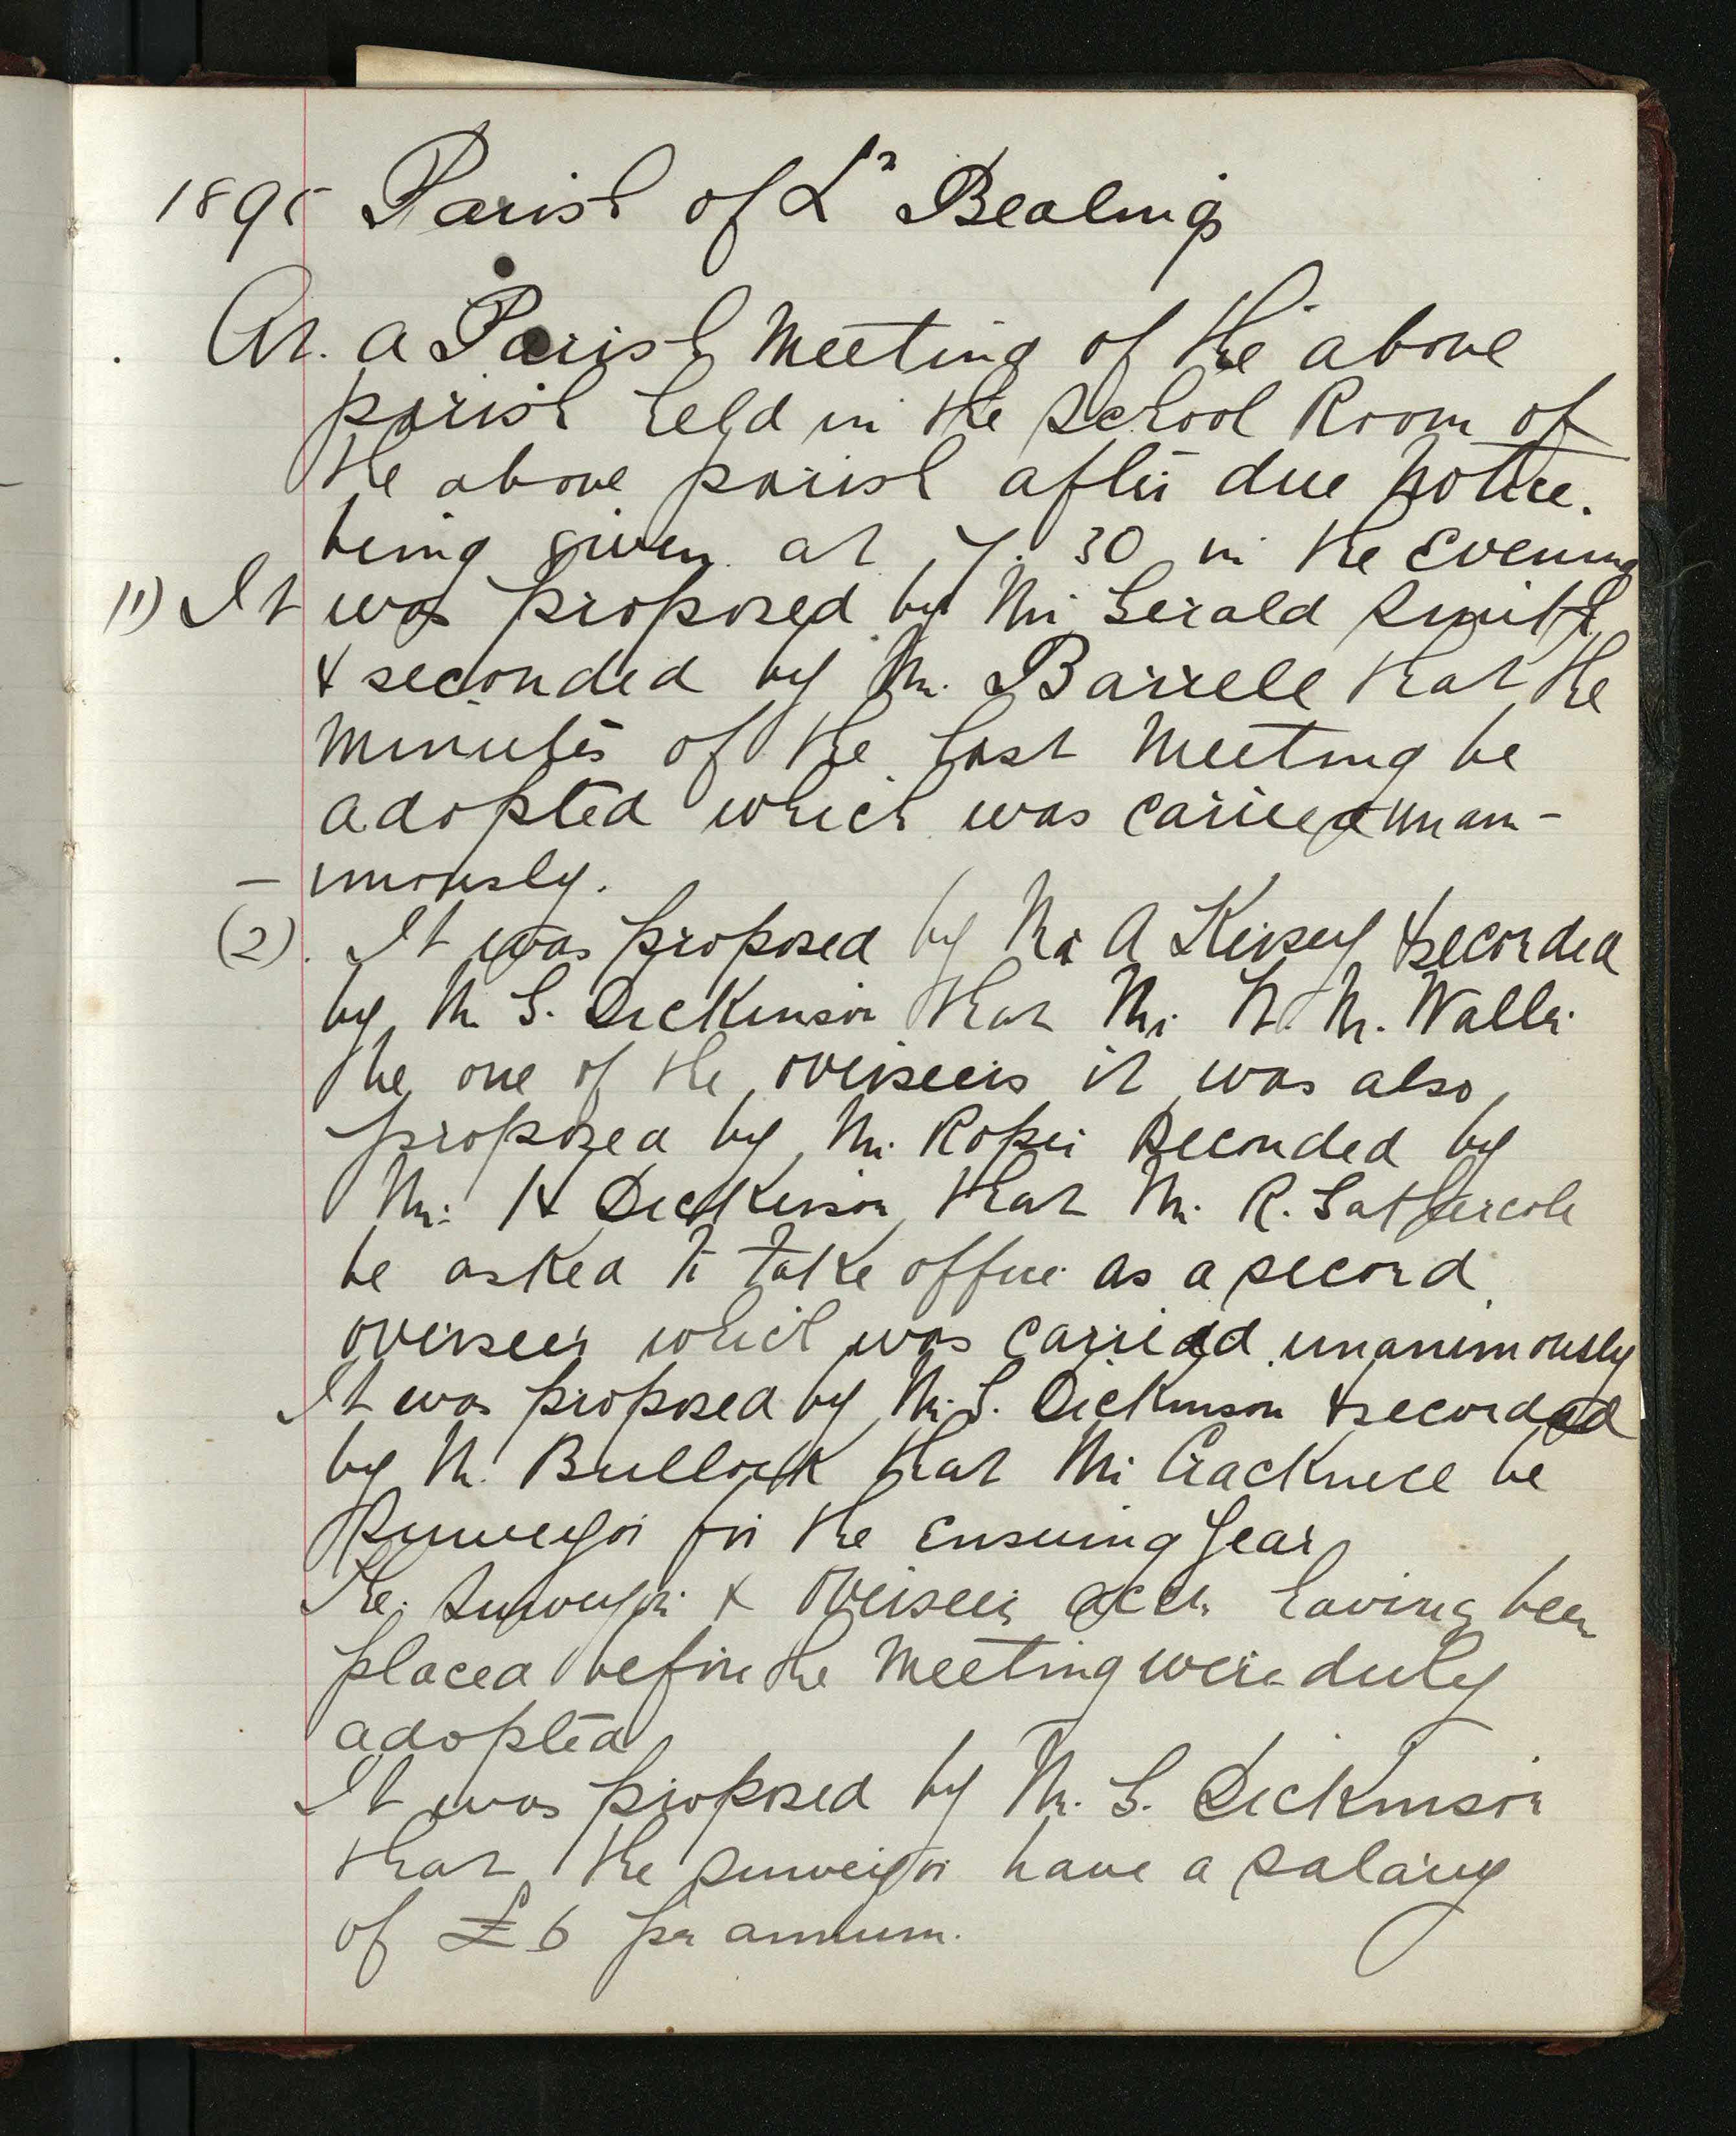 1895 Parish of Lt Bealings
At. a Parish Meeting of the above
parish held in the School Room of
the above parish after due notice.
being given at 7. 30 in the Evening
(1) It was proposed by Mr Gerald Smith
& seconded by Mr. Barrell that the
Minutes of the last Meeting be
adopted which was carried unam-
- imously.
(2). It was proposed by Mr A Kersey & seconded
by Mr G. Dickinson that Mr. H. M. Waller
be one of the overseers it was also
proposed by Mr. Roper Seconded by
Mr. H Dickinson that Mr. R.
be asked to take office as a second
overseer which was carried unanimously
It was proposed by Mr. G. Dickinson & seconded
by Mr. Bullock that Mr Cracknell be
Surveyor for the Ensuing Year
The. Surveyor & Overseer accts having been
placed before the Meeting were duly
adopted
It was proposed by Mr. G. Dickinson
that the surveyor have a salary
of £6 per annum.